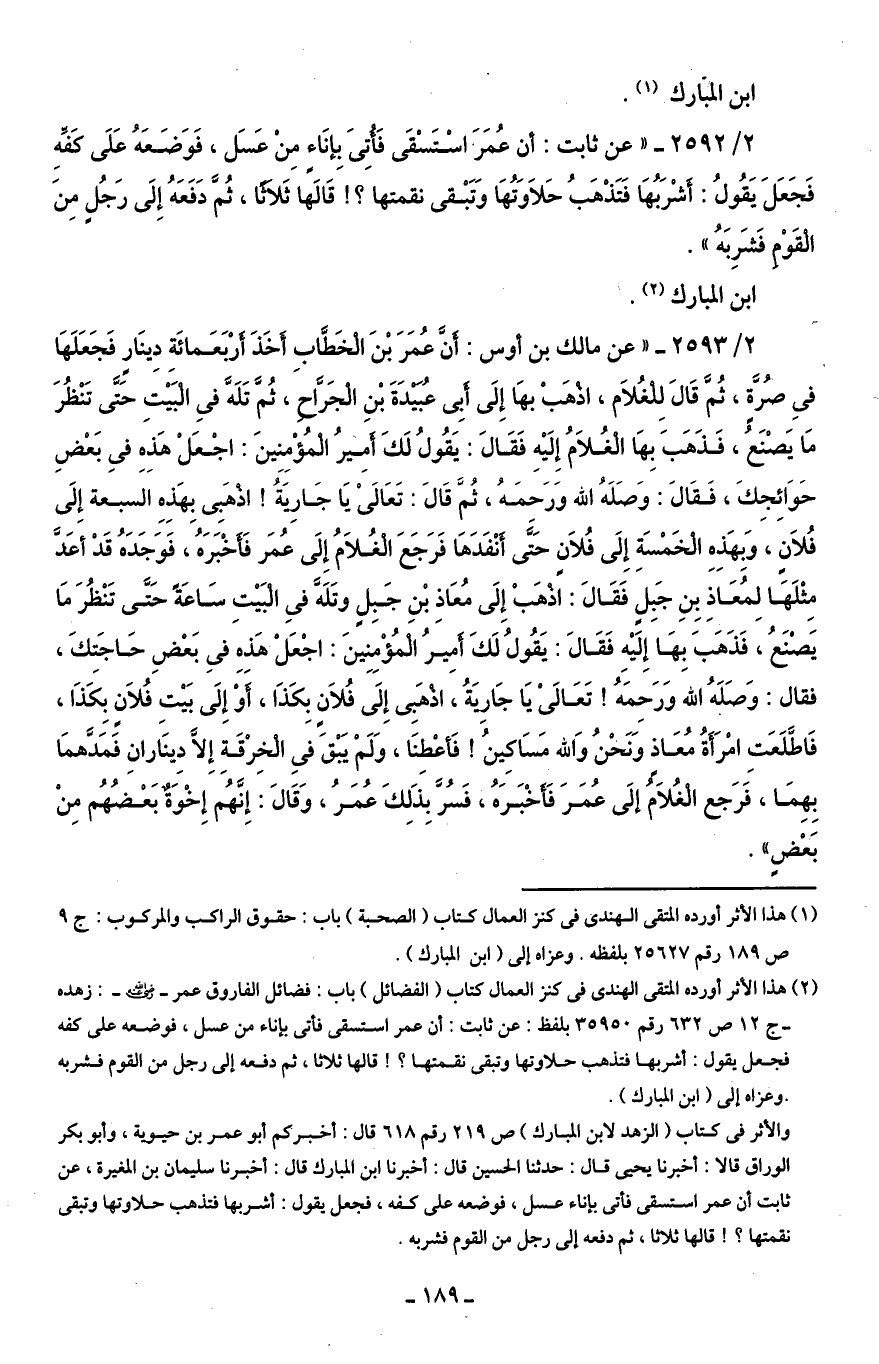 ابن المبارك (١) .
٢/ ٢٥٩٢ ـ « عن ثابت : أن عُمَرَ اسْتَسْقَى فَأُتىَ بِإنَاءٍ مِنْ عَسَل ، فَوَضَعَهُ عَلَى كَفِّه
فَجَعَلَ يَقُولُ : أَشْرَبُهَا فَتَذْهَبُ حَلاَوَتُهَا وَتَبْقى نقمتها ؟! قَالَها ثَلاَثًا ، ثُمَّ دَفَعَهُ إِلَى رَجُلٍ مِنَ
الْقَوْمِ فَشَرِبَهُ » .
ابن المبارك (٢) .
٢/ ٢٥٩٣ ـ « عن مالك بن أوس : أَنَّ عُمَرَ بْنَ الْخَطَّابِ أَخَذَ أَرْبَعَمائَةِ دِينَارٍ فَجَعَلَهَا
فى صُرَّةٍ ، ثُمَّ قَالَ لِلْغُلاَمِ ، اذْهَبْ بِهَا إِلَى أَبِى عُبَيْدَةَ بْنِ الْجَرَّاحِ ، ثُمَّ تَلَهَّ فى الْبَيْتِ حَتَّى تَنْظُرَ
مَا يَصْنَعُ ، فَذَهَبَ بِهَا الْغُلاَمُ إِلَيْهِ فَقَالَ : يَقُولُ لَكَ أَمِيرُ الْمُؤْمِنِينَ : اجْعَلْ هَذِهِ فى بَعْضِ
حَوَائِجِكَ ، فَقَالَ : وَصَلَهُ الله وَرَحِمَهُ ، ثُمَّ قَالَ : تَعَالَىْ يَا جَارِيَةُ ! اذْهَبِى بِهَذِهِ السبعة إِلَى
فُلاَنٍ ، وَبِهَذِهِ الْخَمْسَةِ إِلَى فُلاَنٍ حَتَّى أَنْفَدَهَا فَرَجَعَ الْغُلاَمُ إِلَى عُمَرَ فَأَخْبَرَهُ ، فَوَجَدَهُ قَدْ أعَدَّ
مِثْلَهَا لِمُعَاذِ بنِ جَبَلٍ فَقَالَ : اذْهَبْ إِلَى مُعَاذِ بْنِ جَبلٍ وتَلَهَّ فى الْبَيْتِ سَاعَةً حَتَّى تَنْظُرَ مَا
يَصْنَعُ ، فَذَهَبَ بِهَا إِلَيْهِ فَقَالَ : يَقُولُ لَكَ أَمِيرُ الْمُؤْمِنِينَ : اجْعَلْ هَذِهِ فى بَعْضِ حَاجَتِكَ ،
فقال : وَصَلَهُ الله وَرَحِمَهُ ! تَعَالَىْ يَا جَارِيَةُ ، اذْهَبِى إِلَى فُلاَنٍ بِكَذَا ، أَوْ إِلَى بَيْتِ فُلاَنٍ بِكَذَا ،
فَاطَّلَعَتِ امْرَأَةُ مُعَاذٍ وَنَحْنُ وَالله مَسَاكِينُ ! فَأَعْطِنَا ، وَلَمْ يَبْقَ فى الْخِرْقَةِ إِلاَّ دِينَارانِ فَمَدَّهمَا
بِهِمَا ، فَرَجع الْغُلاَمُ إِلَى عُمَرَ فَأَخْبَرَهُ ، فَسُرَّ بِذَلِكَ عُمَرُ ، وَقَالَ : إِنَّهُم إِخْوَةٌ بَعْضُهُم مِنْ
بَعْضٍ» .
(١) هذا الأثر أورده المتقى الهندى فى كنز العمال كتاب ( الصحبة ) باب : حقوق الراكب والمركوب : ج ٩
ص ١٨٩ رقم ٢٥٦٢٧ بلفظه . وعزاه إلى ( ابن المبارك ) .
(٢) هذا الأثر أورده المتقى الهندى فى كنز العمال كتاب ( الفضائل ) باب : فضائل الفاروق عمر ـ رضي الله عنه ـ : زهده
ـ ج ١٢ ص ٦٣٢ رقم ٣٥٩٥٠ بلفظ : عن ثابت : أن عمر استسقى فأتى بإناء من عسل ، فوضعه على كفه
فجعل يقول : أشربها فتذهب حلاوتها وتبقى نقمتها ؟ ! قالها ثلاثا ، ثم دفعه إلى رجل من القوم فشربه
.وعزاه إلى ( ابن المبارك ) .
والأثر فى كتاب ( الزهد لابن المبارك ) ص ٢١٩ رقم ٦١٨ قال : أخبركم أبو عمر بن حيوية ، وأبو بكر
الوراق قالا : أخبرنا يحيى قال : حدثنا الحسين قال : أخبرنا ابن المبارك قال : أخبرنا سليمان بن المغيرة ، عن
ثابت أن عمر استسقى فأتى بإناء عسل ، فوضعه على كفه ، فجعل يقول : أشربها فتذهب حلاوتها وتبقى
نقمتها ؟ ! قالها ثلاثا ، ثم دفعه إلى رجل من القوم فشربه .
ـ ١٨٩ ـ